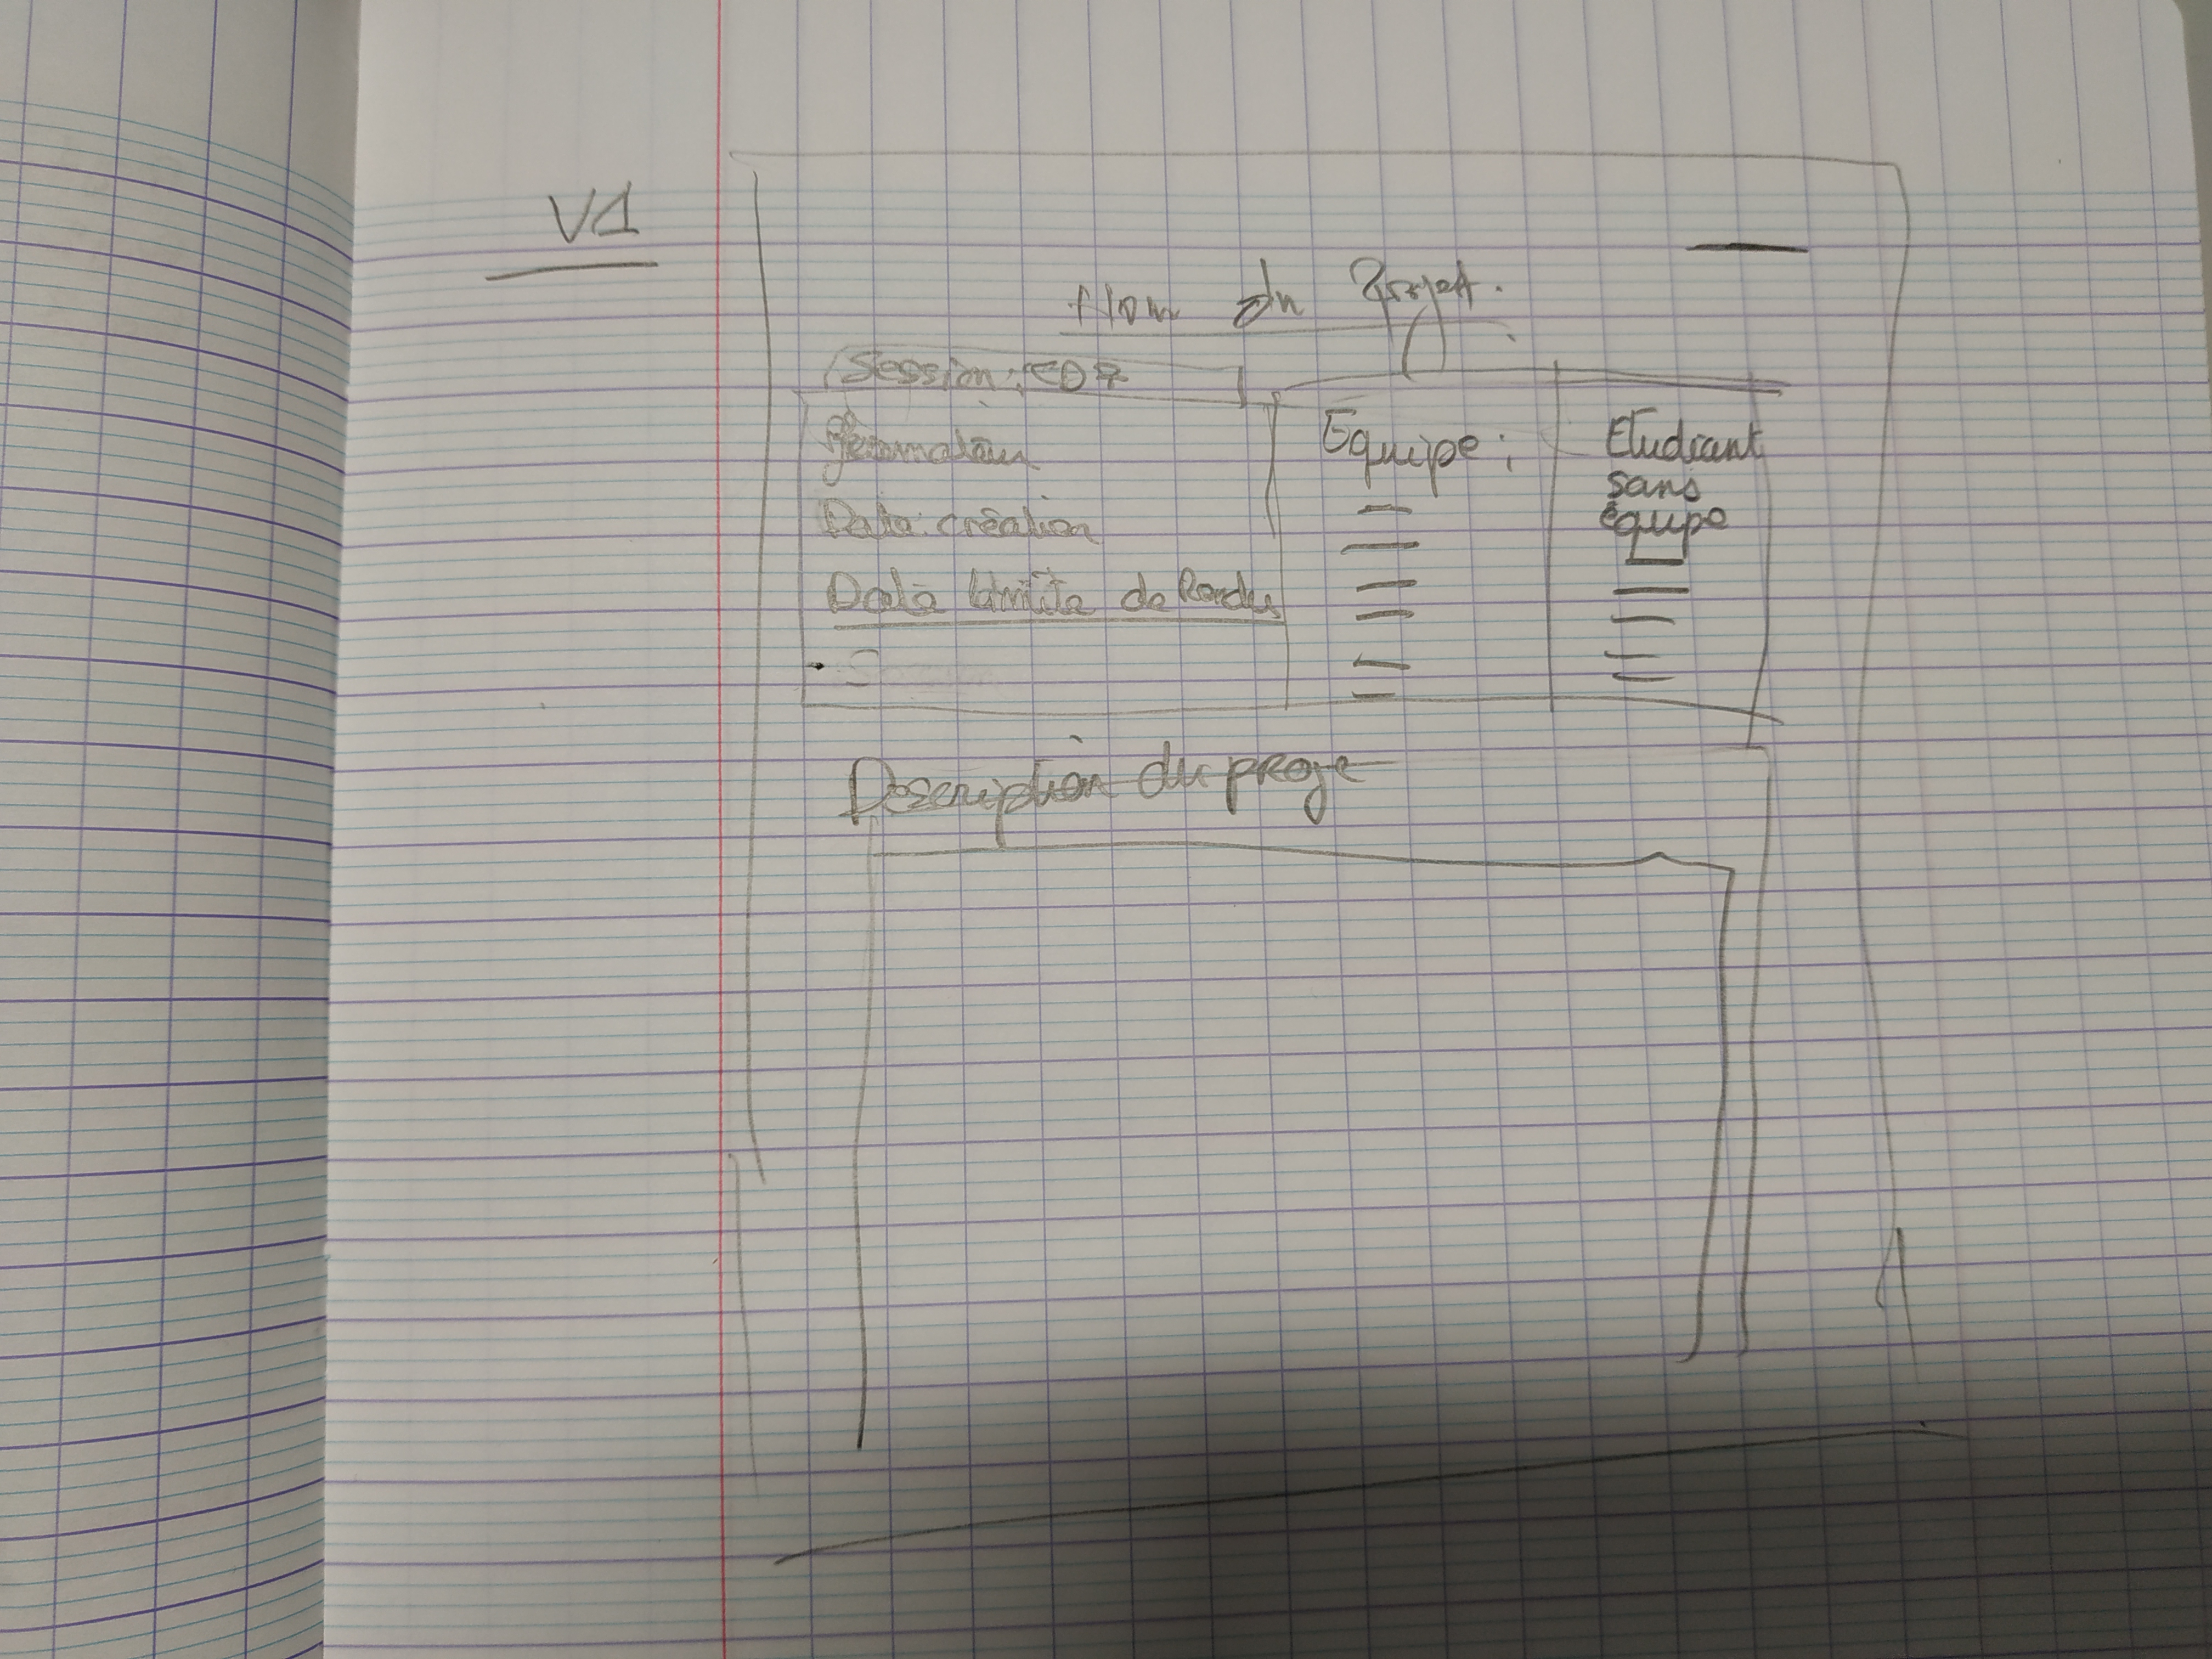 V1
Nom du Projet.
Session:
Formateur
Date création
Date limite de Rendu
Equipe:
Etudiant
sans
équipe
Description du proje